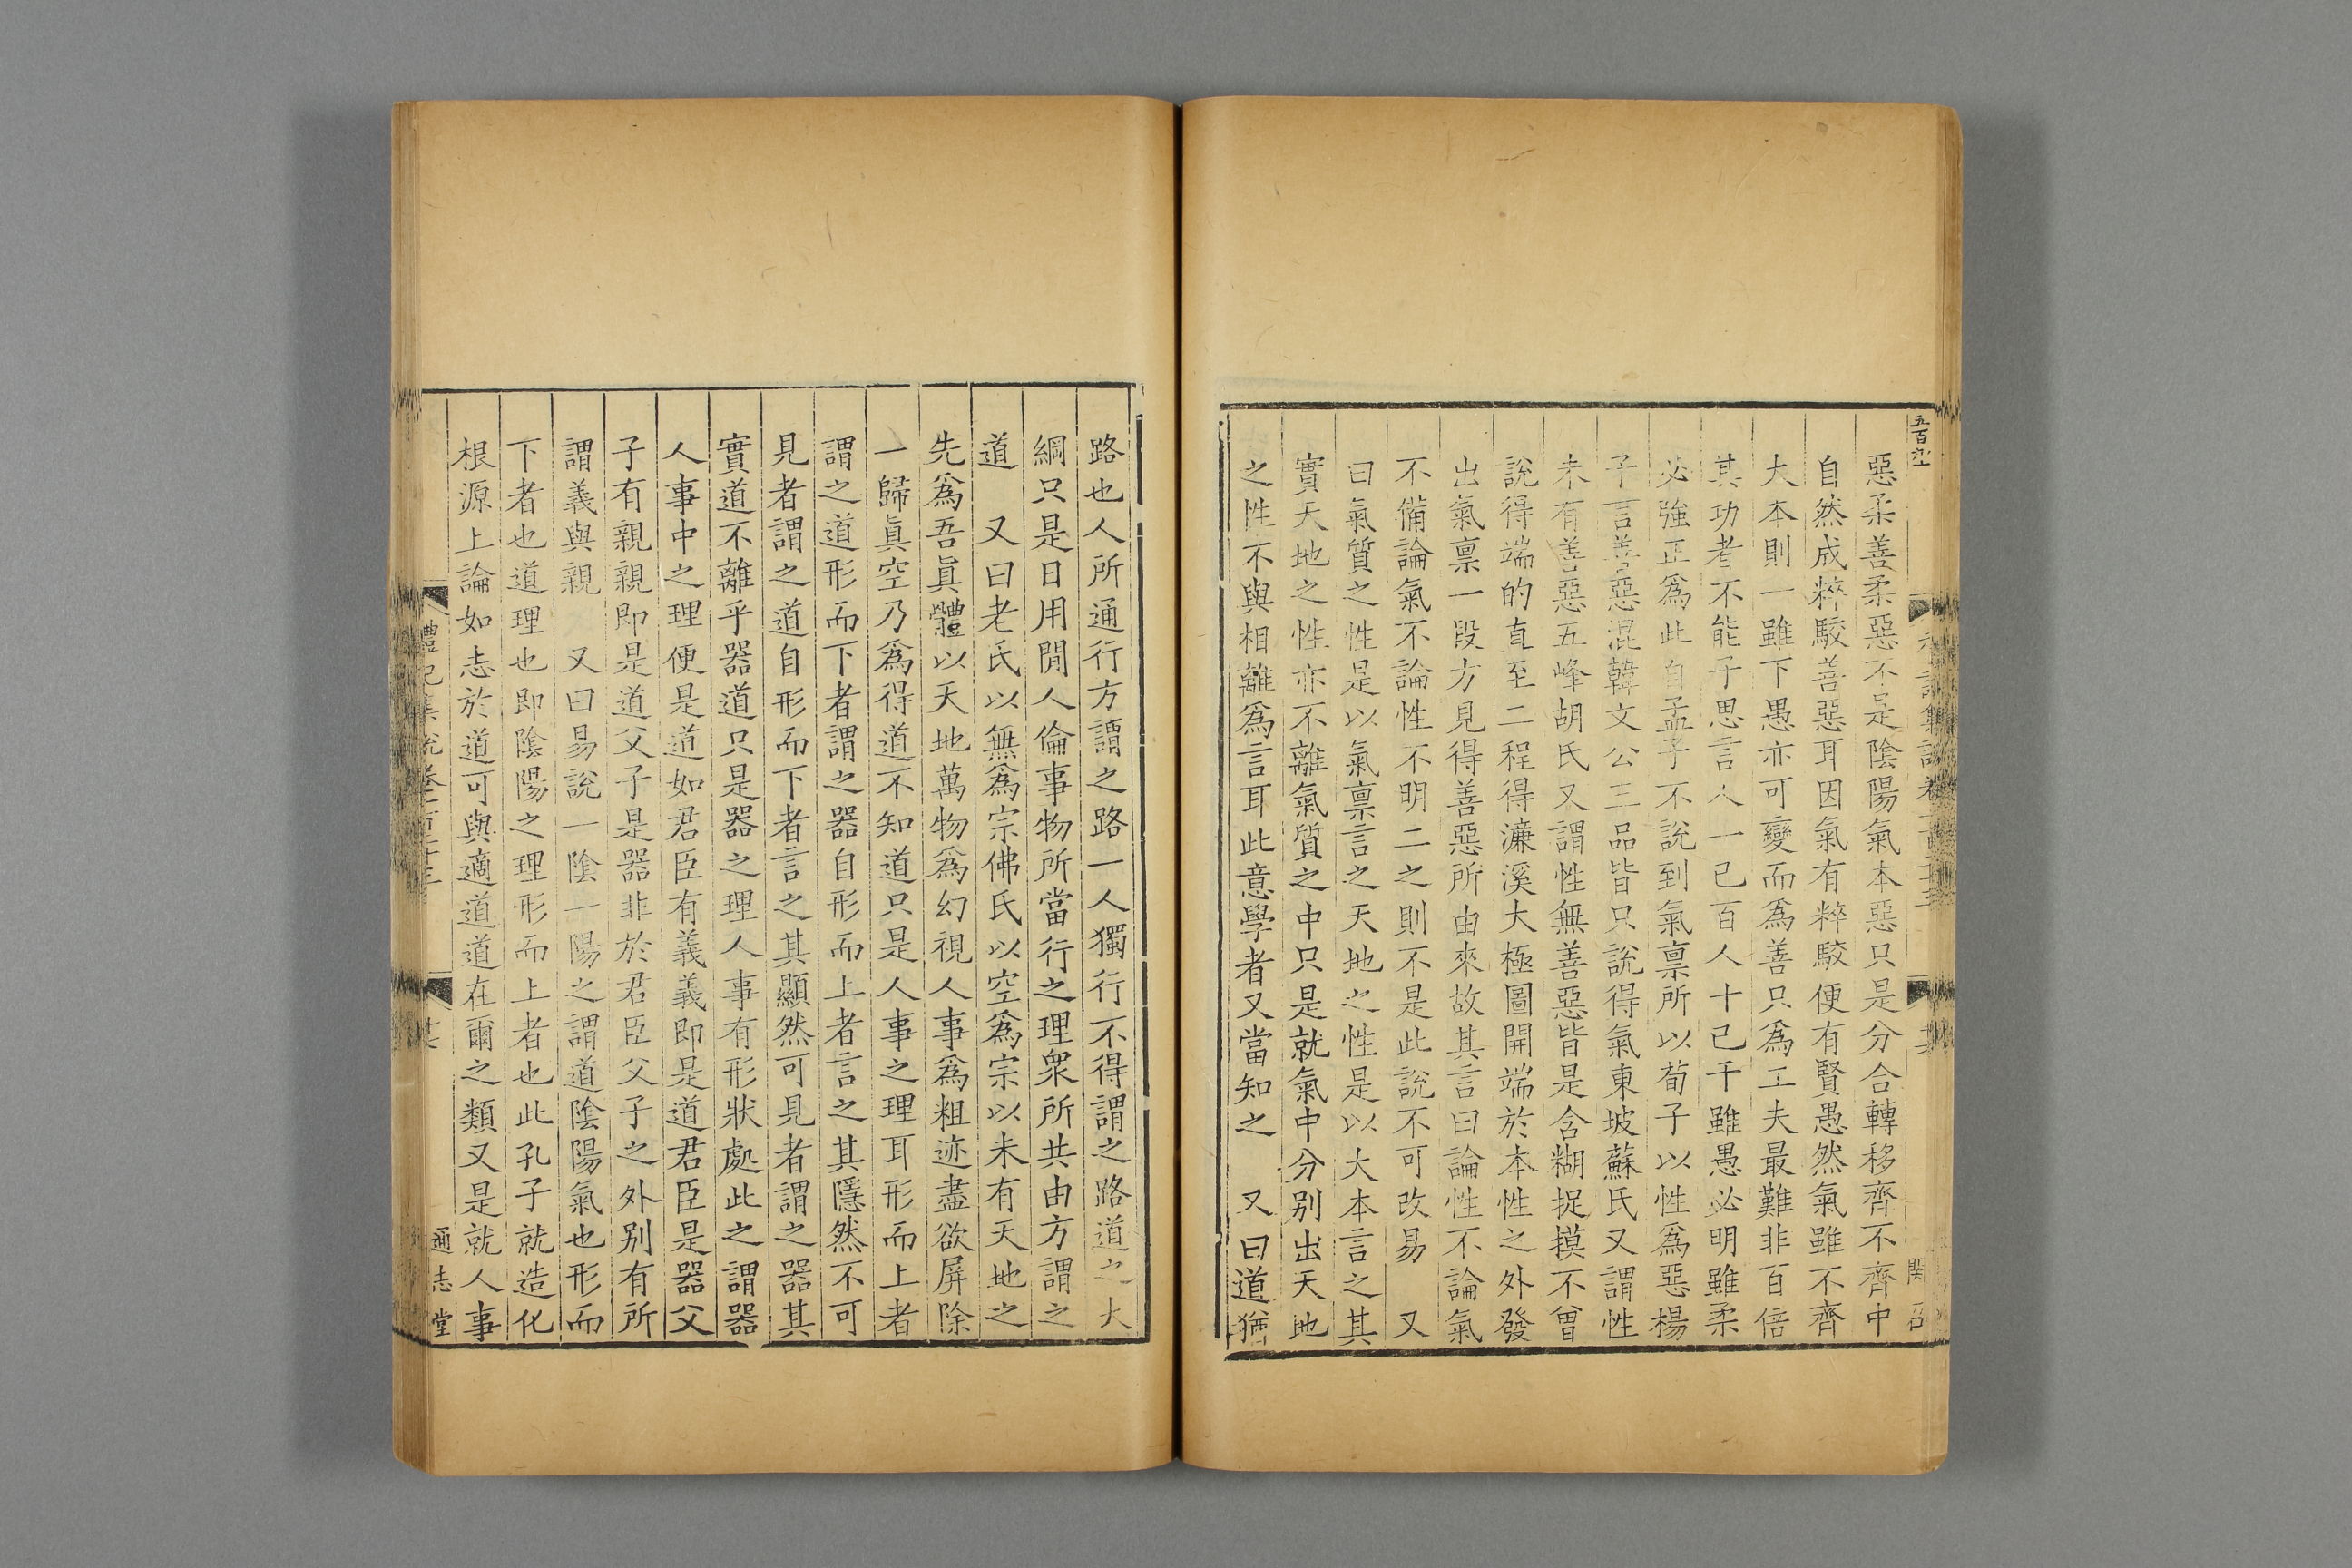 惡柔善柔惡不是陰陽氣本惡只是分合轉移齊不齊中
自然成粹駁善惡耳因氣有粹駁便有賢愚然氣雖不齊
大本則一雖下愚亦可變而爲善只爲工夫最難非百倍
其功者不能子思言人一已百人十已千雖愚必明雖柔
必強正爲此自孟子不說到氣禀所以荀子以性爲惡楊
子言善惡混韓文公三品皆只說得氣東坡蘇氏又謂性
未有善惡五峰胡氏又謂性無善惡皆是含糊捉摸不曾
說得端的直至二程得濂溪大極圖開端於本性之外發
出氣禀一段方見得善惡所由來故其言曰論性不論氣
不備論氣不論性不明二之則不是此說不可改易　又
曰氣質之性是以氣禀言之天地之性是以大本言之其
實天地之性亦不離氣質之中只是就氣中分别出天地
之性不與相離爲言耳此意學者又當知之　又曰道猶
路也人所通行方謂之路一人獨行不得謂之路道之大
綱只是日用閒人倫事物所當行之理衆所共由方謂之
道　又曰老氏以無爲宗佛氏以空爲宗以未有天地之
先爲吾眞體以天地萬物爲幻視人事爲粗迹盡欲屏除
一歸眞空乃爲得道不知道只是人事之理耳形而上者
謂之道形而下者謂之器自形而上者言之其隱然不可
見者謂之道自形而下者言之其顯然可見者謂之器其
實道不離乎器道只是器之理人事有形狀處此之謂器
人事中之理便是道如君臣有義義即是道君臣是器父
子有親親即是道父子是器非於君臣父子之外别有所
謂義與親　又曰易說一陰一陽之謂道陰陽氣也形而
下者也道理也即陰陽之理形而上者也此孔子就造化
根源上論如志於道可與適道道在爾之類又是就人事
禮記集說卷一百二十三
通志堂